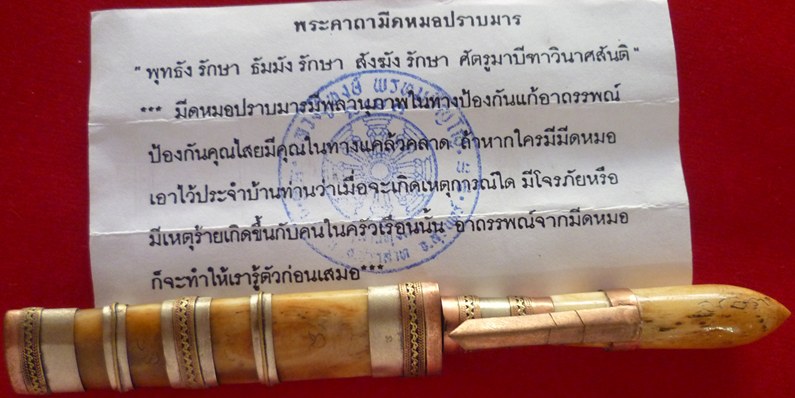 พระคาถามีดหมอปราบมาร
" พุทธัง รักษา ธัมมัง รักษา สังฆัง รักษา ศัตรูมาบีฑาวินาศสันติ "
*** มีดหมอปราบมารมีพลานุภาพในทางป้องกันแก้อาถรรพณ์
ป้องกันคุณไสยมีคุณในทางแคล้วคลาด ถ้าหากใครมีมีดหมอ
เอาไว้ประจำบ้านท่านว่าเมื่อจะเกิดเหตุการณ์ใด มีโจรภัยหรือ
มีเหตุร้ายเกิดขึ้นกับคนในครัวเรือนนั้น อาถรรพณ์จากมีดหมอ
ก็จะทำให้เรารู้ตัวก่อนเสมอ***